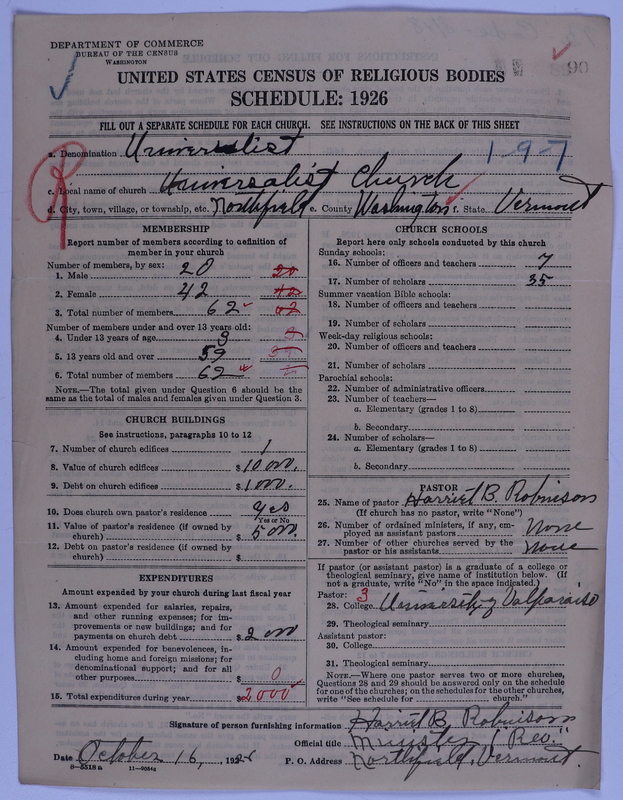 DEPARTMENT OF COMMERCE
BUREAU OF THE CENSUS
WASHINGTON
90
UNITED STATES CENSUS OF RELIGIOUS BODIES
SCHEDULE: 1926
FILL OUT A SEPARATE SCHEDULE FOR EACH CHURCH. SEE INSTRUCTIONS ON THE BACK OF THIS SHEET
a. Denomination Universalist
1-9-7
R
c. Local name of church Universalist Church
d. City, town, village, or township, etc. Northfield e. County Washington f. State Vermont
MEMBERSHIP
Report number of members according to definition of
member in your church
Number of members, by sex:
1. Male 20 20
2. Female 42 42
3. Total number of members 62 62
Number of members under and over 13 years old:
4. Under 13 years of age 3 3
5. 13 years old and over 59 59
6. Total number of members 62
NOTE.—The total given under Question 6 should be the
same as the total of males and females given under Question 3.
CHURCH BUILDINGS
See instructions, paragraphs 10 to 12
7. Number of church edifices 1
8. Value of church edifices $10000.
9. Debt on church edifices $1000.
10. Does church own pastor's residence yes
Yes or No
11. Value of pastor's residence (if owned by
church) $5000.
12. Debt on pastor's residence (if owned by
church) $
EXPENDITURES
Amount expended by your church during last fiscal year
13. Amount expended for salaries, repairs,
and other running expenses; for im-
provements or new buildings; and for
payments on church debt $2000
14. Amount expended for benevolences, in-
cluding home and foreign missions; for
denominational support; and for all
other purposes $0
15. Total expenditures during year $2000
CHURCH SCHOOLS
Report here only schools conducted by this church
Sunday schools:
16. Number of officers and teachers 7
17. Number of scholars 35
Summer vacation Bible schools:
18. Number of officers and teachers
19. Number of scholars
Week-day religious schools:
20. Number of officers and teachers
21. Number of scholars
Parochial schools:
22. Number of administrative officers
23. Number of teachers—
a. Elementary (grades 1 to 8)
b. Secondary
24. Number of scholars—
a. Elementary (grades 1 to 8)
b. Secondary
PASTOR
25. Name of pastor Harriet B. Robinson
(If church has no pastor, write "None")
26. Number of ordained ministers, if any, em-
ployed as assistant pastors None
27. Number of other churches served by the
pastor or his assistants None
If pastor (or assistant pastor) is a graduate of a college or
theological seminary, give name of institution below. (If
not a graduate, write "No" in the space indicated.)
Pastor: 3
28. College University of Valparaiso
29. Theological seminary
Assistant pastor:
30. College
31. Theological seminary
NOTE.—Where one pastor serves two or more churches,
Questions 28 and 29 should be answered only on the schedule
for one of the churches; on the schedules for the other churches,
write "See schedule for church."
Signature of person furnishing information Harriet B. Robinson
Official title Minister "Rev."
Date October 16, 192
P. O. Address Northfield, Vermont.
8-5518a 11-9054